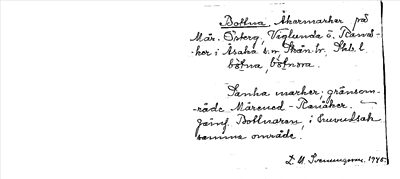 Bottna, Åkermarker på
Mår. Österg, Väglunda o. Ranås-
ker i Åsaka s:n Skån hr. Skbs l.
bȯtna, bȯtnora.
Sanka marker; gränsom-
råde Mårened - Ranåker.
Jämf. Bottnaren, i
samma område.
D. M. Svenungsson. 1945.